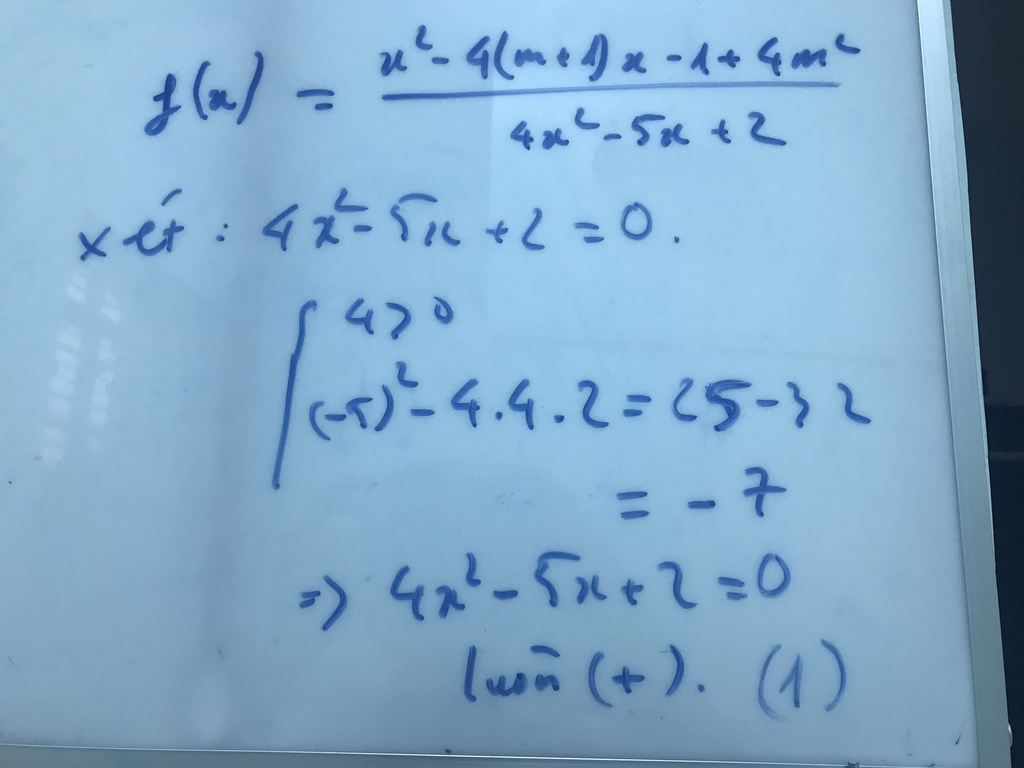 f(x) = x² - 4(m+1)x - 1 + 4m² / 4x² - 5x + 2
xét : 4x² - 5x + 2 = 0.
4 > 0
(-5)² - 4.4.2 = 25 - 32
= -7
=> 4x² - 5x + 2 = 0
luôn (+). (1)